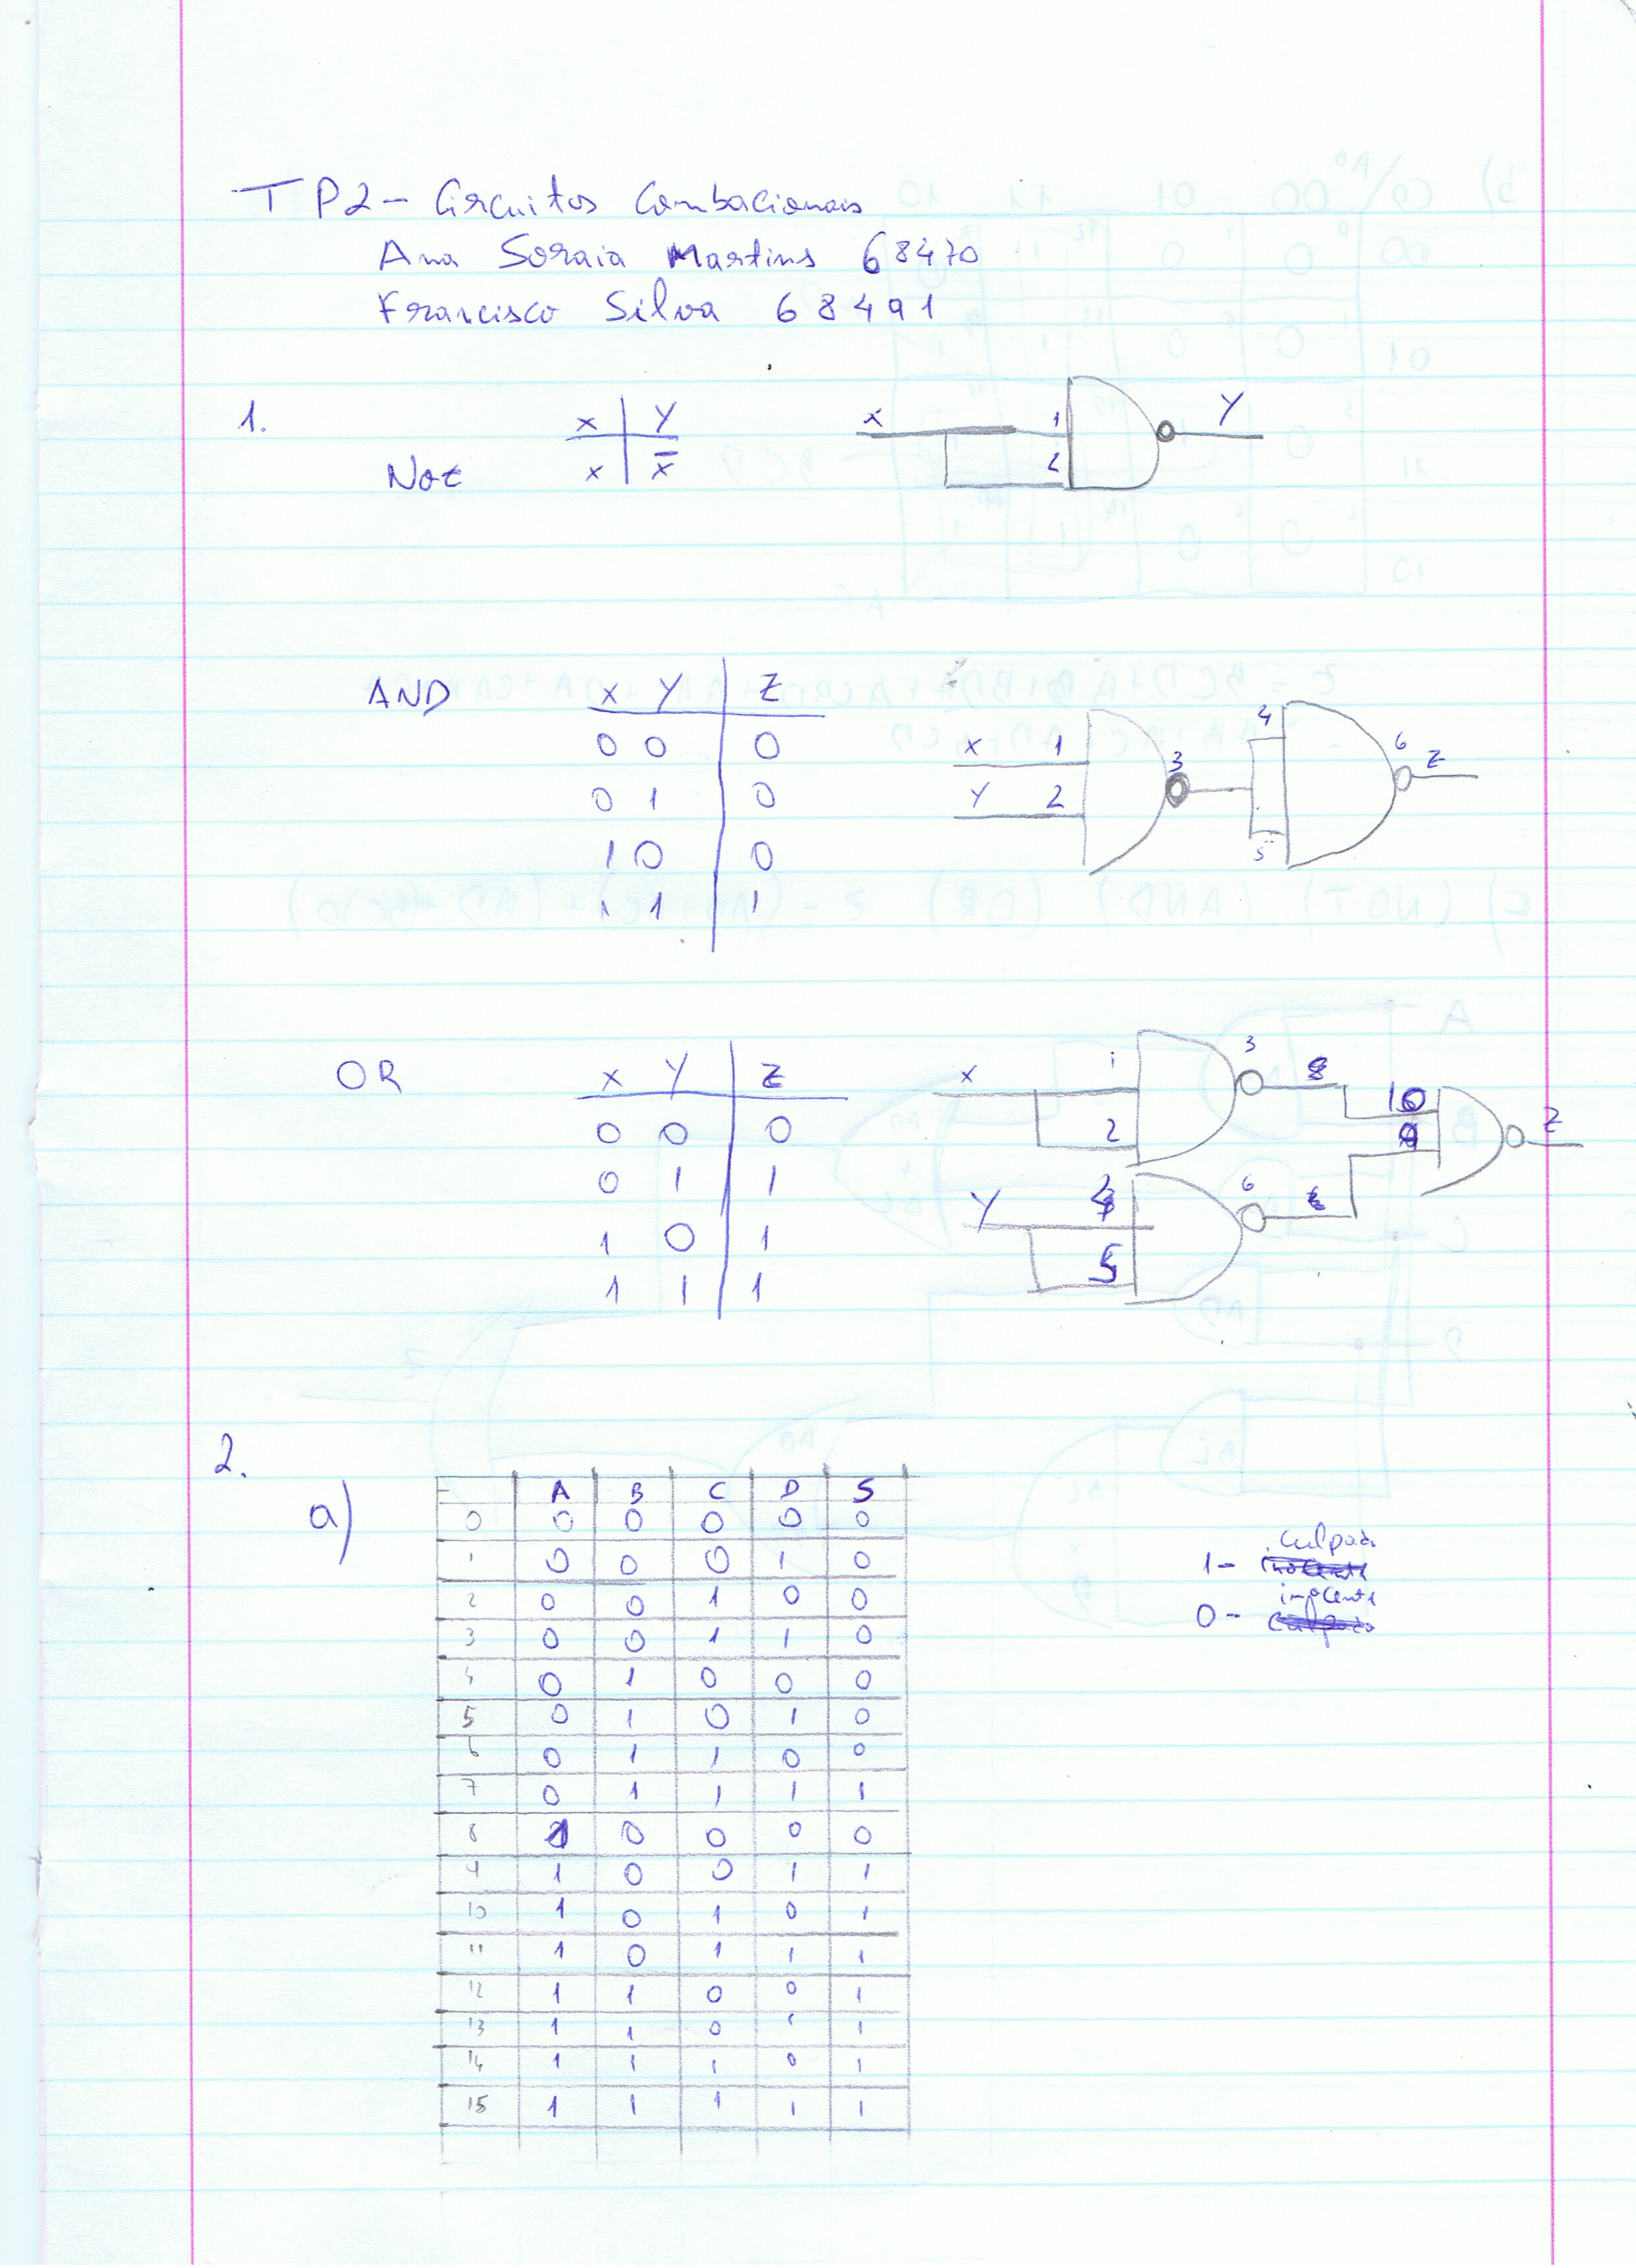 TP2 - Circuitos Combacionais
Ana Soraia Martins 68470
Francisco Silva 68491
1.
Not
x Y
x x̅
x 1 2 Y
AND
x Y Z
0 0 0
0 1 0
1 0 0
1 1 1
x 1 3 4 6 Z
Y 2 5
OR
x Y Z
0 0 0
0 1 1
1 0 1
1 1 1
x 1 3 8 10 Z
2 9
Y 4 6
5
2.
a)
A B C D S
0 0 0 0 0 0
1 0 0 0 1 0
2 0 0 1 0 0
3 0 0 1 1 0
4 0 1 0 0 0
5 0 1 0 1 0
6 0 1 1 0 0
7 0 1 1 1 1
8 1 0 0 0 0
9 1 0 0 1 1
10 1 0 1 0 1
11 1 0 1 1 1
12 1 1 0 0 1
13 1 1 0 1 1
14 1 1 1 0 1
15 1 1 1 1 1
1 - culpado
0 - inocente